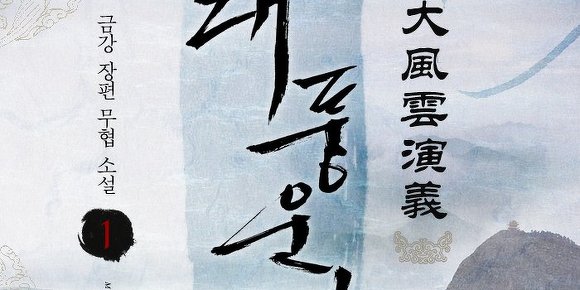 大風雲演義
대풍운
금강 장편 무협 소설
1